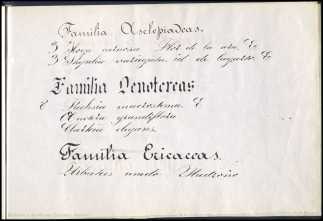 Familia Asclepiadeas.
3 Hoya carnosa Flor de la cera E
3 Stapelia variegata id de lagarto E
Familia Oenotereas
E Fuchsia macrostema E
Œnotera grandiflora
Clarkia elegans
Familia Ericaceas.
Arbutus unedo Madroño